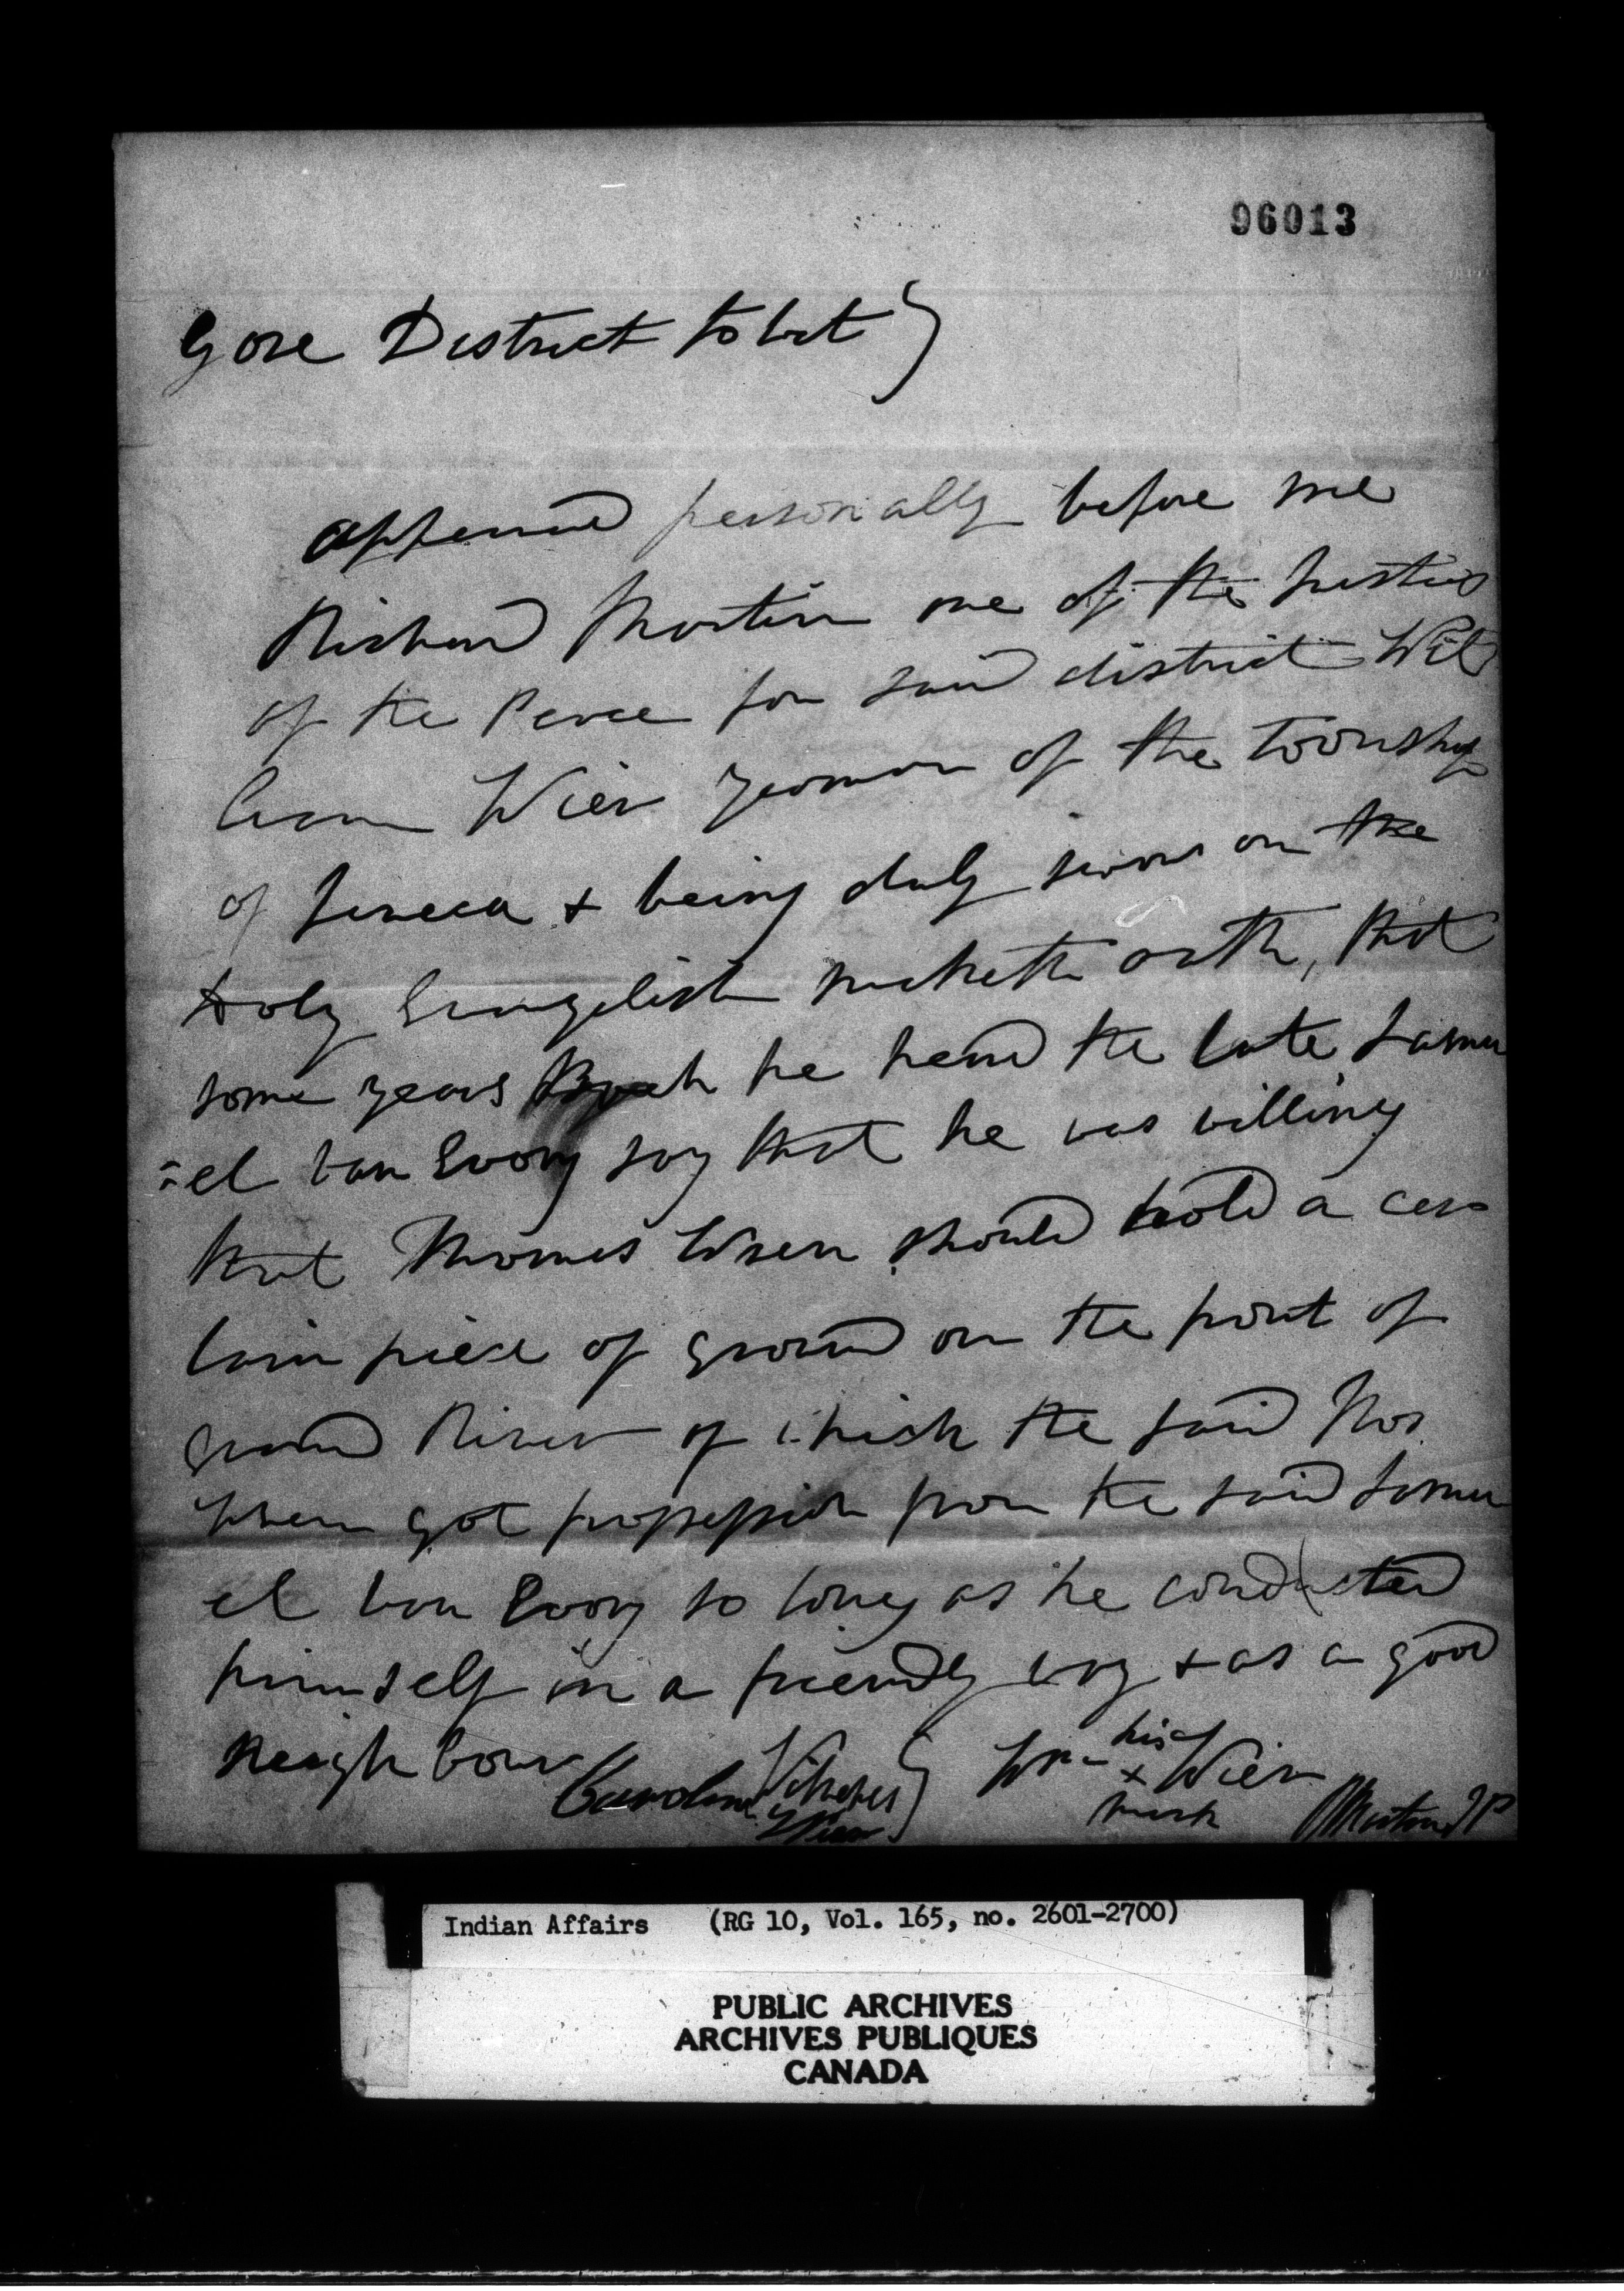 96013
Gore District to wit }
appeared personally before me
Richard Martin one of the Justices
of the Peace for said district Wil
liam Wier yeoman of the Township
of Seneca & being duly sworn on the
Holy Evangelist maketh oath, that
some years back he heard the late Samu
=el Van Evory say that he was willing
that Thomas Wren should hold a cer
tain piece of ground on the front of
Grand River of which the said Thos
Wren got possession from the said Samu
el Van Evory so long as he conducted
himself in a friendly way & as a good
neighbour
Caroline } Wm his x mark Wier
RMartin JP
Indian Affairs (RG 10, Vol. 165, no. 2601-2700)
PUBLIC ARCHIVES
ARCHIVES PUBLIQUES
CANADA